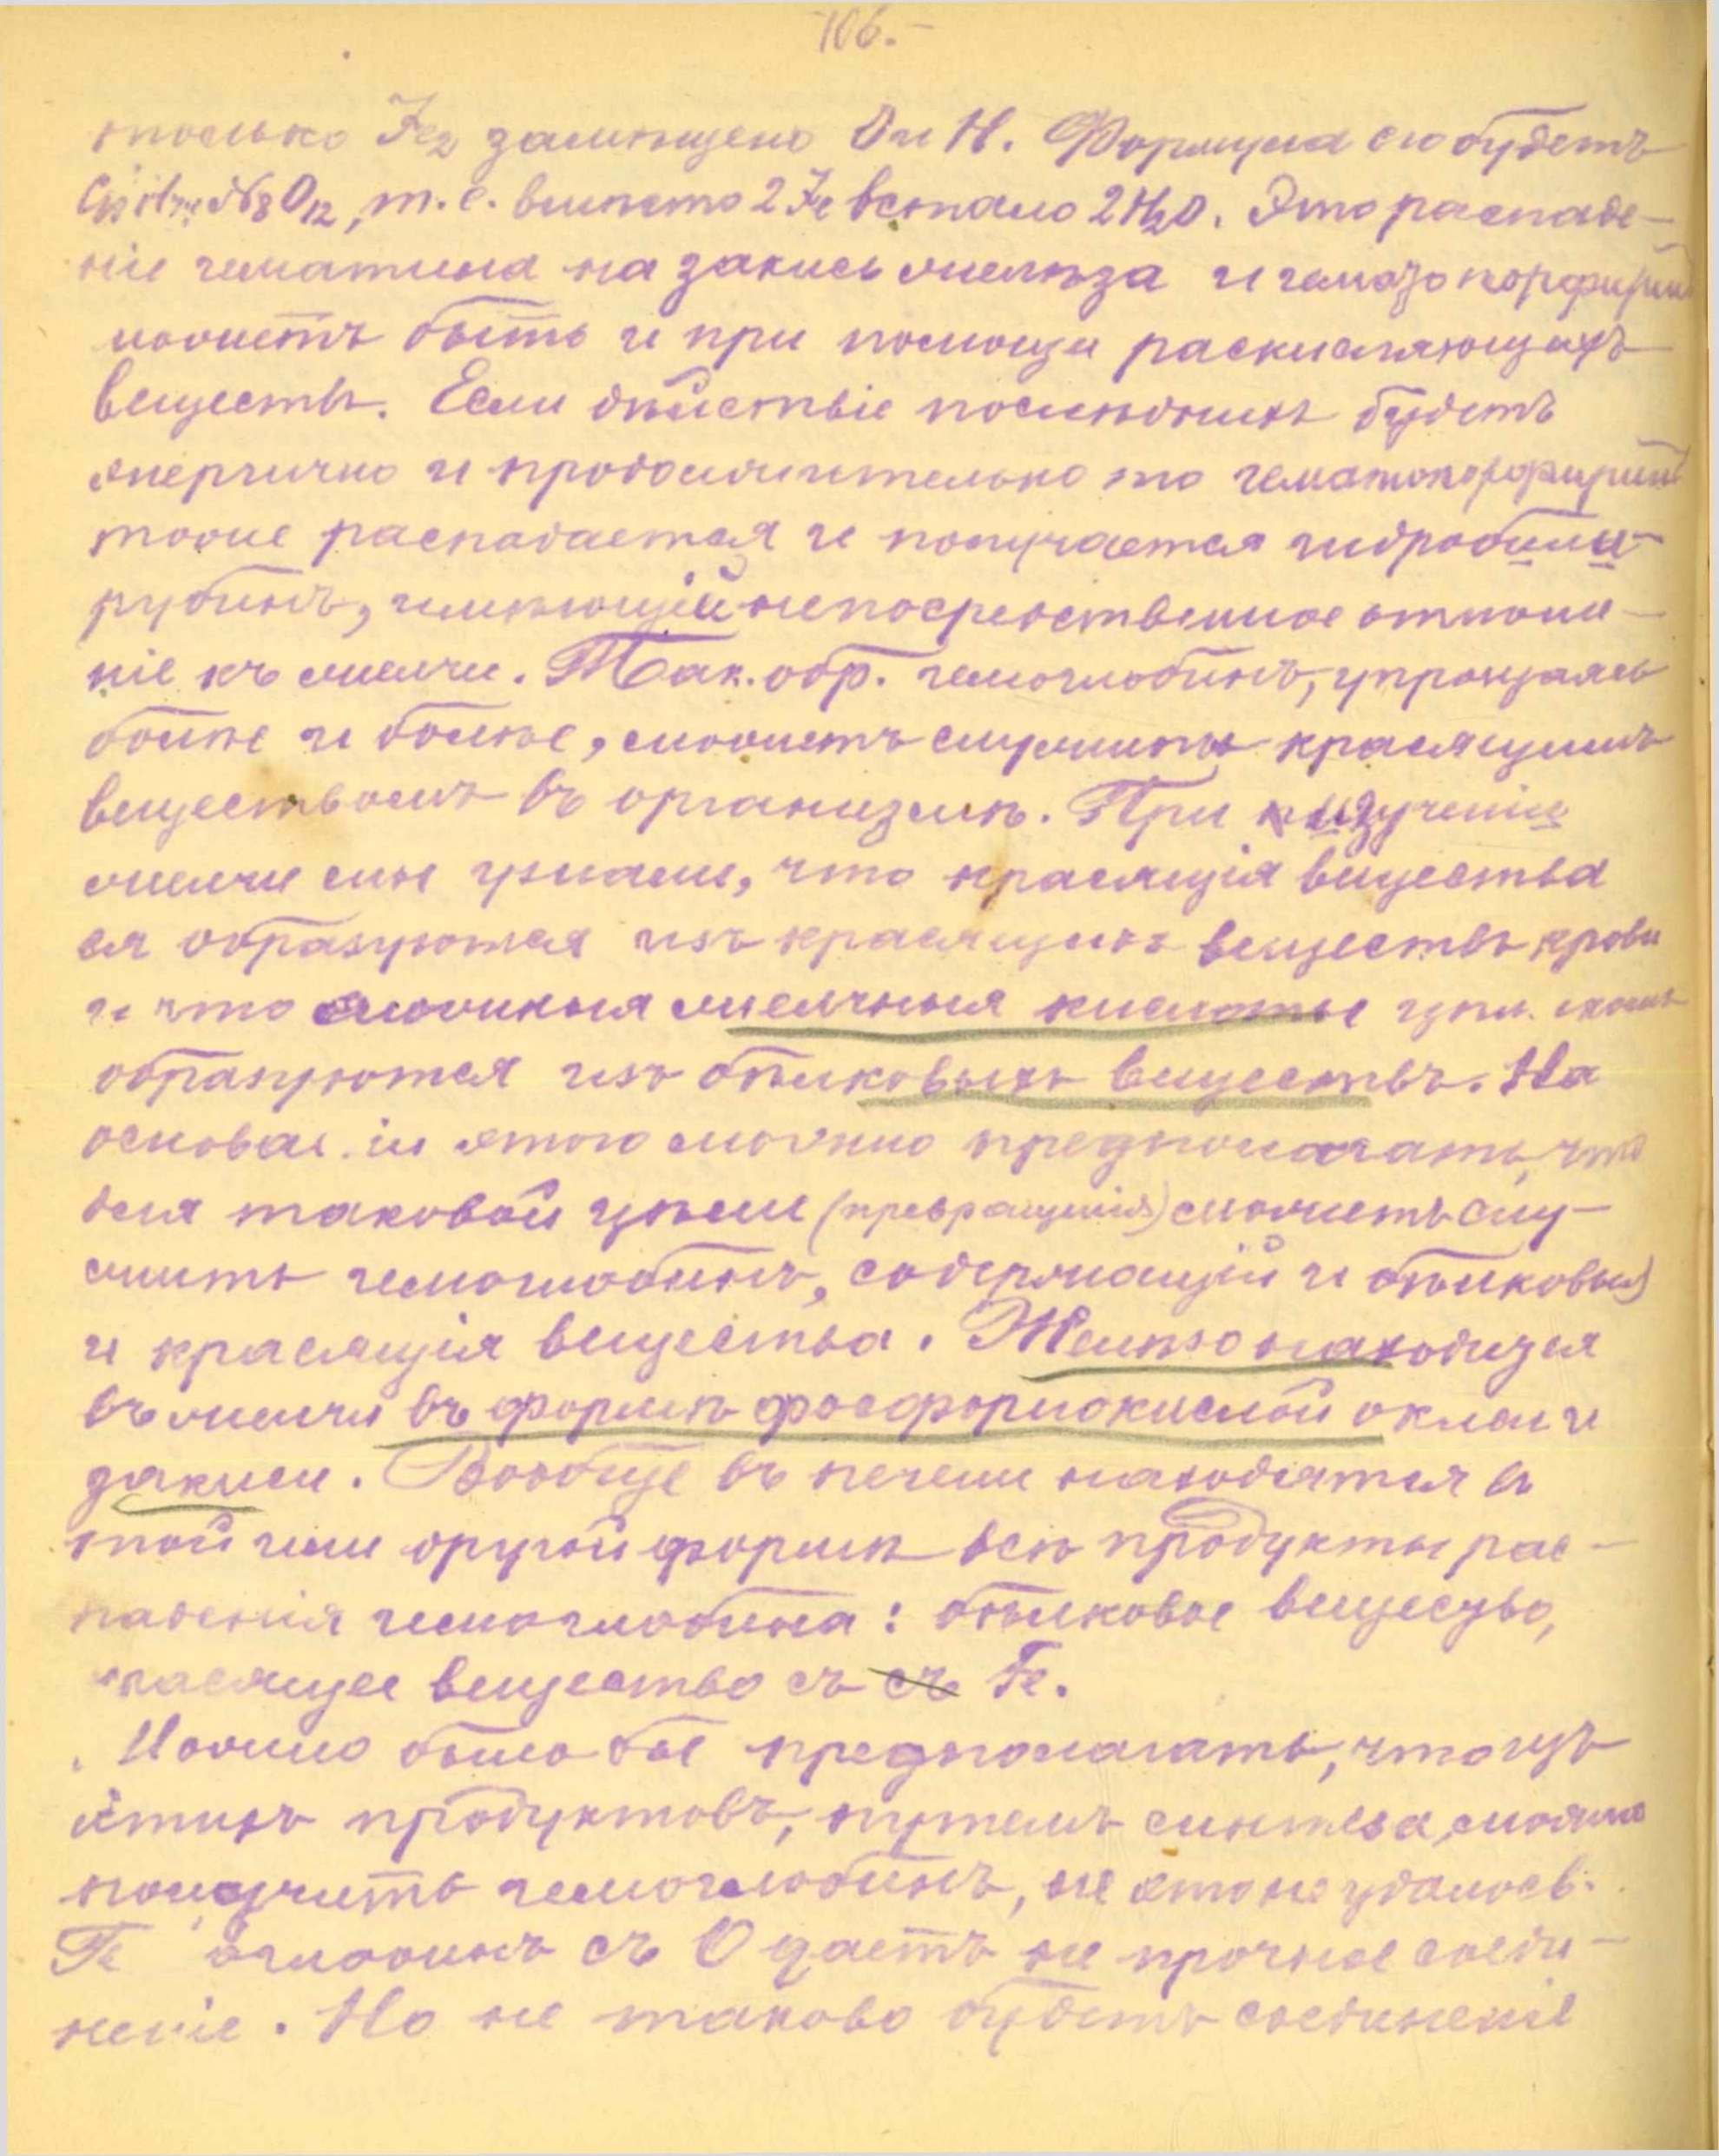 -106.-
только Fe2 замѣщено O и H. Формула его будетъ
N8O12, т.е. вмѣсто 2Fe встало 2H2O. Это распаде-
ніе гематина на закись желѣза и гематопорфиринъ
можетъ быть и при помощи раскисляющихъ
веществъ. Если дѣйствіе послѣднихъ будетъ
энергично и продолжительно то гематопорфиринъ
тоже распадается и получается гидробили-
рубинъ, имѣющій непосредственное отноше-
ніе къ желчи. Так. обр. гемоглобинъ, упрощаясь
болѣе и болѣе, можетъ служить красящимъ
веществомъ въ организмѣ. При изученіи
желчи мы узнали, что красящія вещества
ея образуются изъ красящихъ веществъ крови
и что сложныя желчныя кислоты
образуются изъ бѣлковыхъ веществъ. На
основан.іи этого можно предполагать, что
для таковой цѣли (превращенія) можетъ слу-
жить гемоглобинъ, содержащій и бѣлковыя
и красящія вещества. Желѣзо находится
въ желчи въ формѣ фосфорнокислой окиси и
закиси. Вообще въ печени находятся въ
той или другой формѣ всѣ продукты рас-
паденія гемоглобина: бѣлковое вещество,
красящее вещество съ съ Fe.
Можно было бы предполагать, что изъ
этихъ продуктовъ, путемъ синтеза, можно
получить гемоглобинъ, но это не удалось.
Fe съ O даетъ не прочное соеди-
неніе. Но не таково будетъ соединеніе